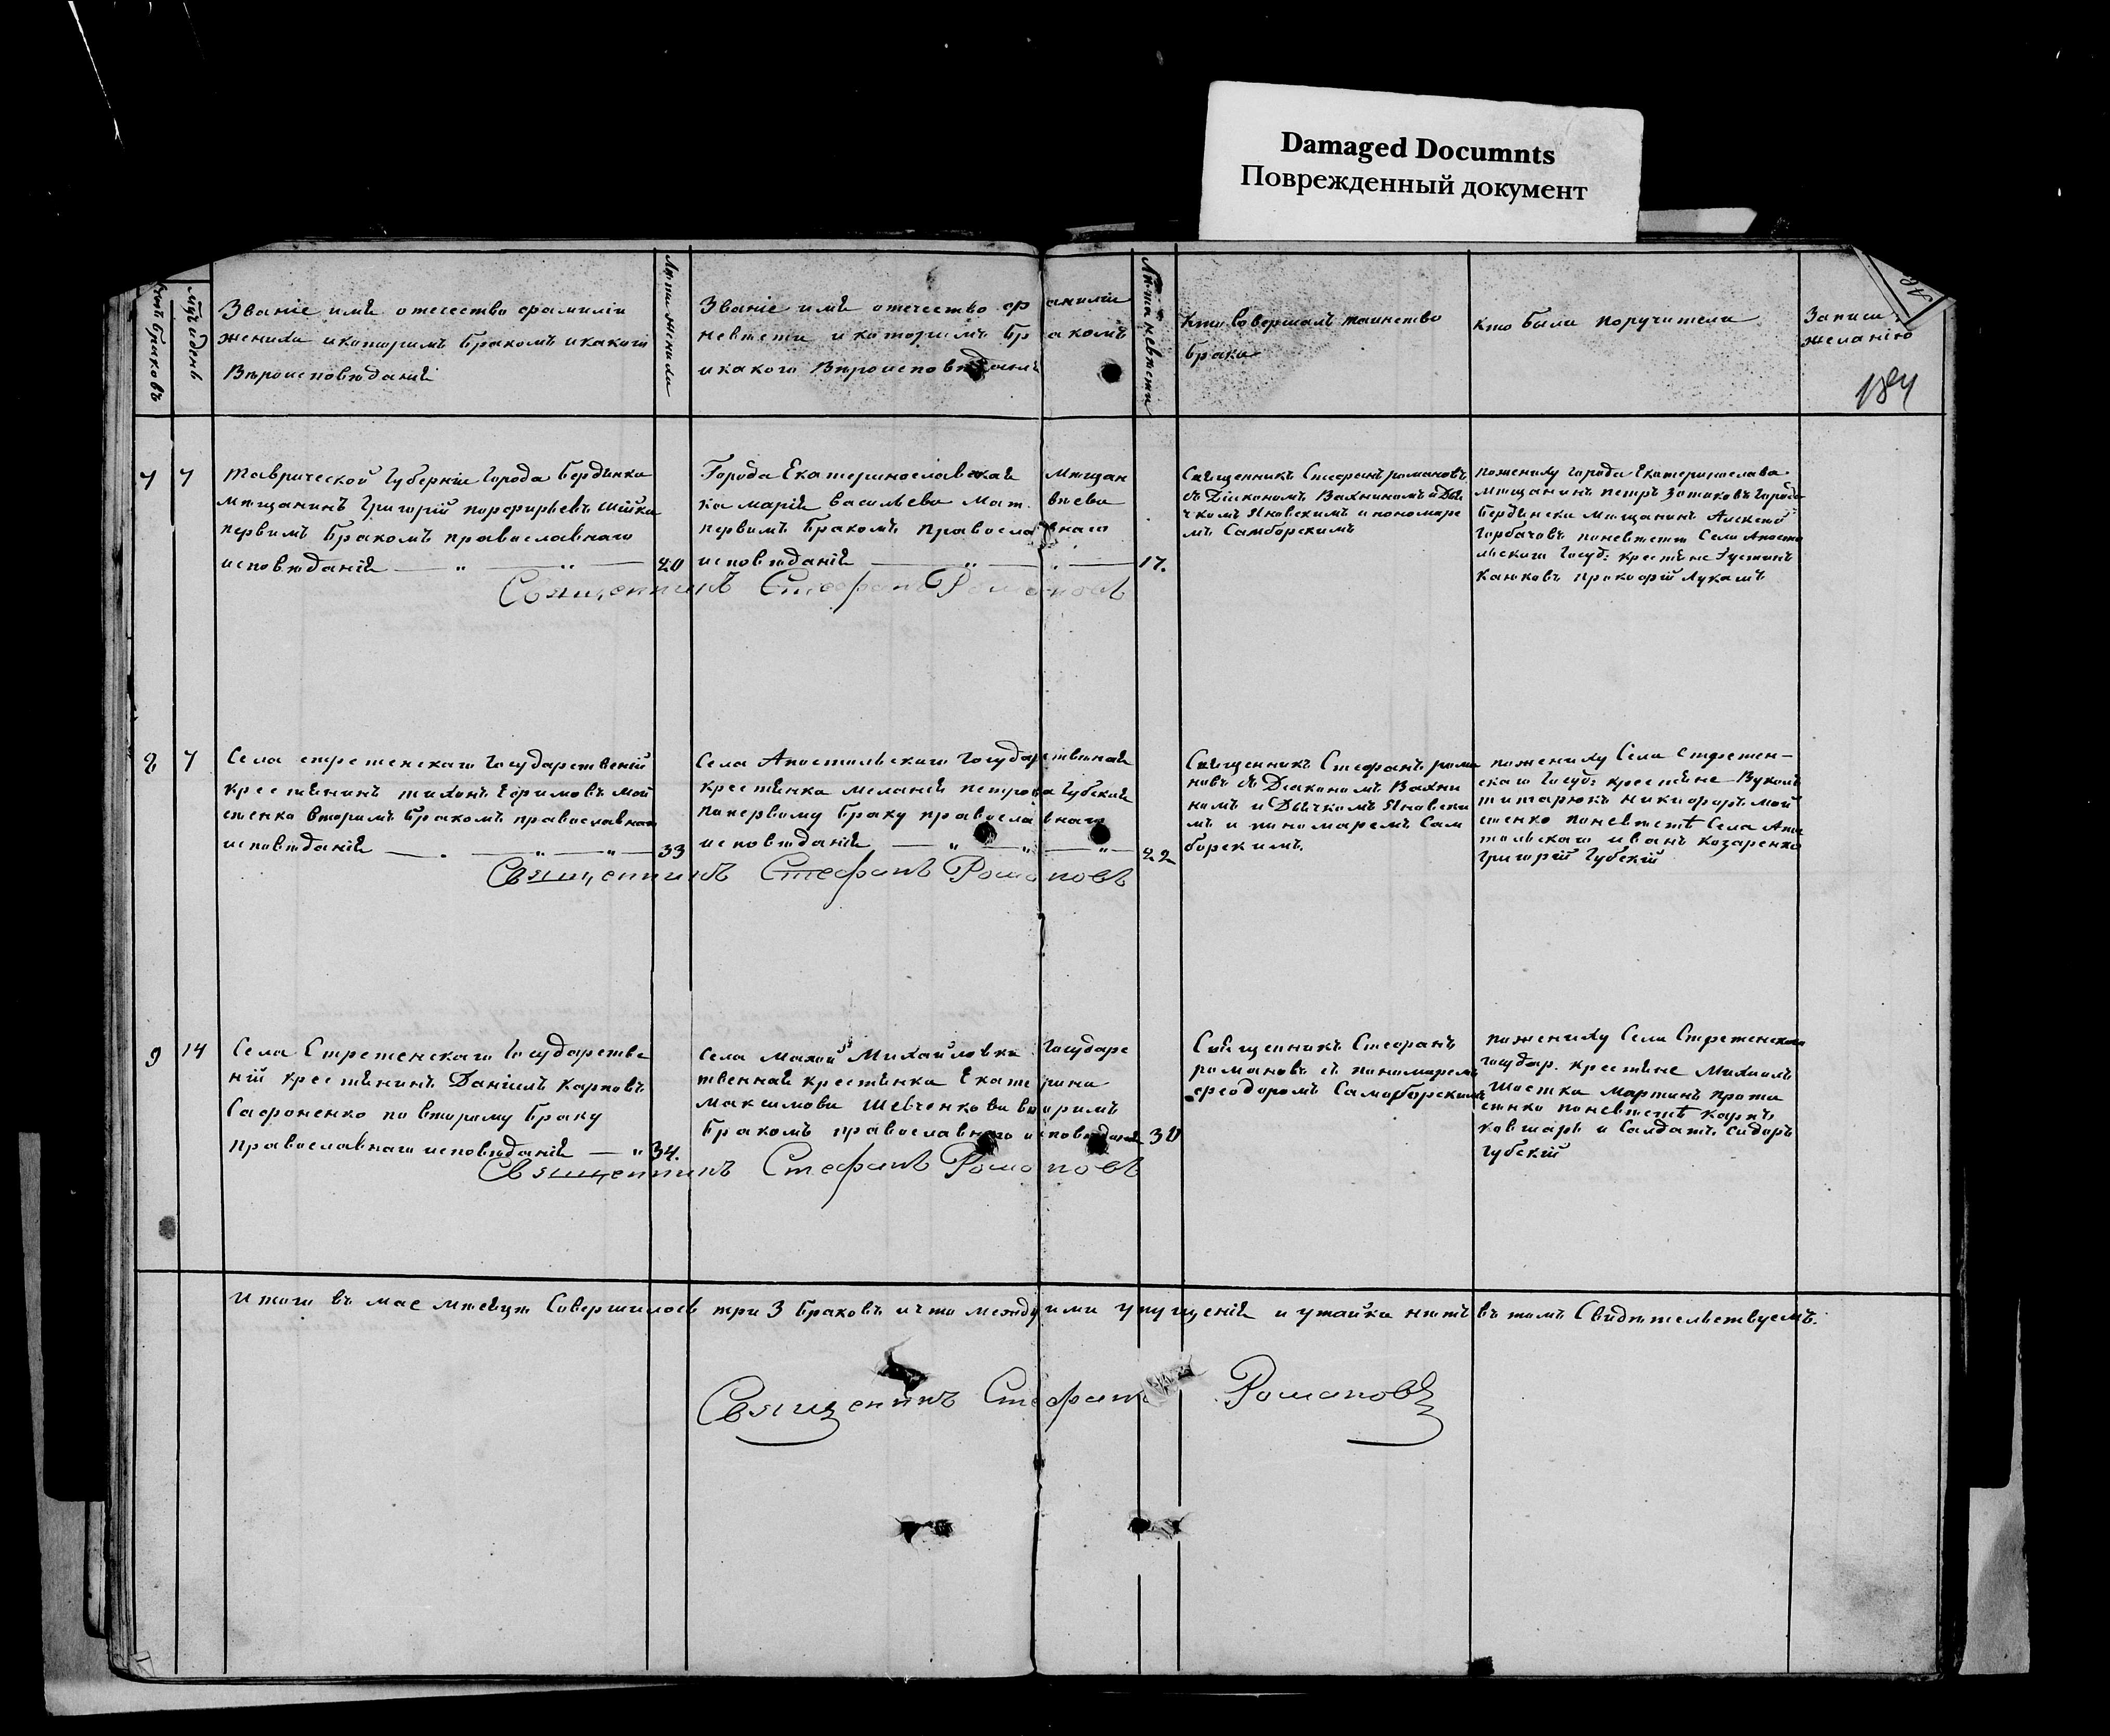 Damaged Documnts
Поврежденный документ
Званіе имя отесество фамиліи
жениха и которимъ бракомъ и какого
Вѣроисповѣданія
Лѣта жениха
Званіе имя отечество фамиліи
невѣсти и которимъ Бракомъ
и какого Вѣроисповѣданія
Лѣта невѣсти
Кто Совершалъ таинство
брака
Кто были поручители
184
7
7
Таврической Губерніи Города Бердянка
мѣщанинъ Григорій порфирьевъ Шійка
первимъ Бракомъ православнаго
исповѣданія
20
Города Екатеринославская Мѣщан
ка марія Васильева Мат вѣева
первимъ Бракомъ Православнаго
исповѣданія
17.
Священникъ Стефанъ романовъ
съ Діякономъ Вахнинимъ и Дья
чкомъ Яновскимъ и пономаре
мъ Самборскимъ
пожениху города Екатеринослава
Мѣщанинъ петръ Зотиковъ Города
Бердянска Мѣщанинъ Алексей
Горбачовъ поневѣсти Села Апосто
льского Госуд: крестяне Густинъ
Канковъ прокофій Лукашъ
Священникъ Стефанъ Романовъ
8
7
Села стретенскаго Государственій
крестянинъ тихонъ Ефимовъ Мой
сѣенко вторимъ бракомъ православнаго
исповѣданія
33
Села Апостольскаго Государственная
крестянка меланія петрова Губская
попервому браку православнаго
исповѣданія
22
Священникъ Стефанъ рома
новъ съ Діякономъ Вахни
нимъ и Дьячкомъ Яновски
мъ и пономаремъ Сам
борскимъ.
пожениху Села Стретен-
скаго Госуд: крестяне Вуколъ
титарюкъ никифоръ мой
сѣенко поневѣстѣ Села Апос
тольскаго иванъ козаренко
Григорій Губскій
Священникъ Стефанъ Романовъ
9
14
Села Стретенскаго Государстве
ній крестянинъ Даніилъ Карповъ
Сафроненко по второму браку
православнаго исповѣданія
34.
Села Малой Михайловки Государс
твенная крестянка Екатерина
Максимова Шевченкова вторимъ
бракомъ православнаго исповѣданія
30
Священникъ Стефанъ
романовъ съ пономаремъ
феодоромъ Самборскимъ
пожениху Села Стретенскаго
государ. крестяне Михаилъ
Шостка Мартинъ прота
сенко поневѣстѣ карпъ
ковшарь и Салдатъ Сидоръ
Губскій
Священникъ Стефанъ Романовъ
Итого въ мае мѣсяцѣ Совершилось три 3 браковъ и что между ими упущенія и утайки нѣтъ въ томъ Свидѣтельствуемъ.
Священикъ Стефанъ Романовъ